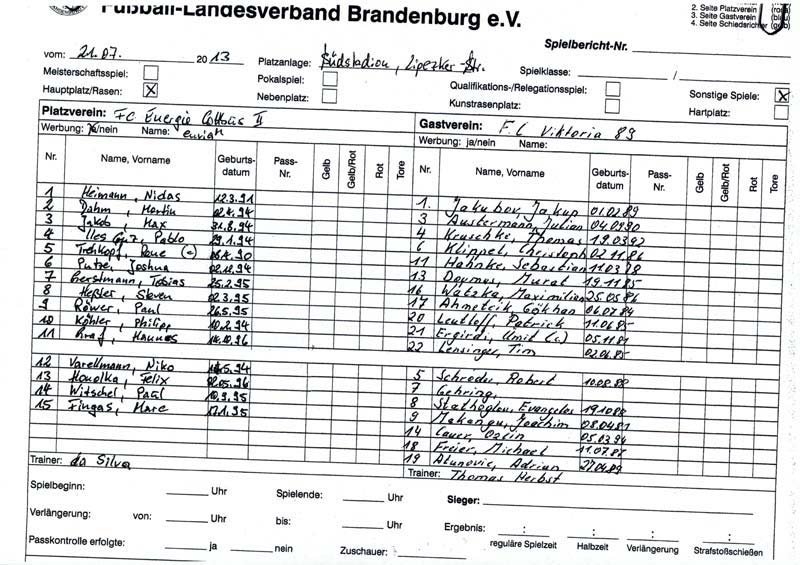 Fußball-Landesverband Brandenburg e.V.
2. Seite Platzverein (rosa)
3. Seite Gastverein (blau)
4. Seite Schiedsrichter (gelb)
Spielbericht-Nr.
vom: 21.07. 2013 Platzanlage: Südstadion, Lipezker-Str. Spielklasse: /
Meisterschaftsspiel: Pokalspiel: Qualifikations-/Relegationsspiel: Sonstige Spiele: X
Hauptplatz/Rasen: X Nebenplatz: Kunstrasenplatz: Hartplatz:
Platzverein: FC Energie Cottbus II
Werbung: ja/nein Name: enviaM
Nr. Name, Vorname Geburts-datum Pass-Nr. Gelb Gelb/Rot Rot Tore
1 Heimann, Nidas 12.3.91
2 Dahm, Martin 02.4.94
3 Jakob, Max 31.8.94
4 Pablo 29.1.94
5 (c) 90
6 Putze, Joshua 02.12.94
7 Gerstmann, Tobias 25.2.95
8 Heßler, Steven 02.3.95
9 Röwer, Paul 26.5.95
10 Köhler, Philipp 10.2.94
11 Graf, Hannes 96
12 Varellmann, Niko 94
13 Honolka, Felix 02.05.96
14 Witschel, Paul 95
15 Fingas, Marc 17.1.95
Trainer: da Silva
Gastverein: F.C Viktoria 89
Werbung: ja/nein Name:
Nr. Name, Vorname Geburts-datum Pass-Nr. Gelb Gelb/Rot Rot Tore
1. Jakubov, Jakup 01.02.89
3 Austermann, Julian 04.09.90
4 Kruschke, Thomas 19.03.92
6 Klippel, Christoph 02.11.86
11 Hahnke, Sebastian 11.03.88
13 Doymus, Murat 19.11.85
16 Watzka, Maximilian 25.05.86
17 Ahmetcik, Gökhan 06.07.84
20 Leutloff, Patrick 11.06.85
21 Ergirdi, Ümit (c) 05.11.81
22 Lensinger, Tim 02.06.85
5 Schröder, Robert 10.08.88
7 Gehring,
8 Stathoglou, Evangelos 19.10.88
9 Makangu, Joachim 08.04.81
14 05.03.94
18 Freier, Michael 11.07.87
19 Alunovic, Adrian 27.04.89
Trainer: Thomas Herbst
Spielbeginn: Uhr Spielende: Uhr Sieger:
Verlängerung: von: Uhr bis: Uhr Ergebnis: : : : :
reguläre Spielzeit Halbzeit Verlängerung Strafstoßschießen
Passkontrolle erfolgte: ja nein Zuschauer: